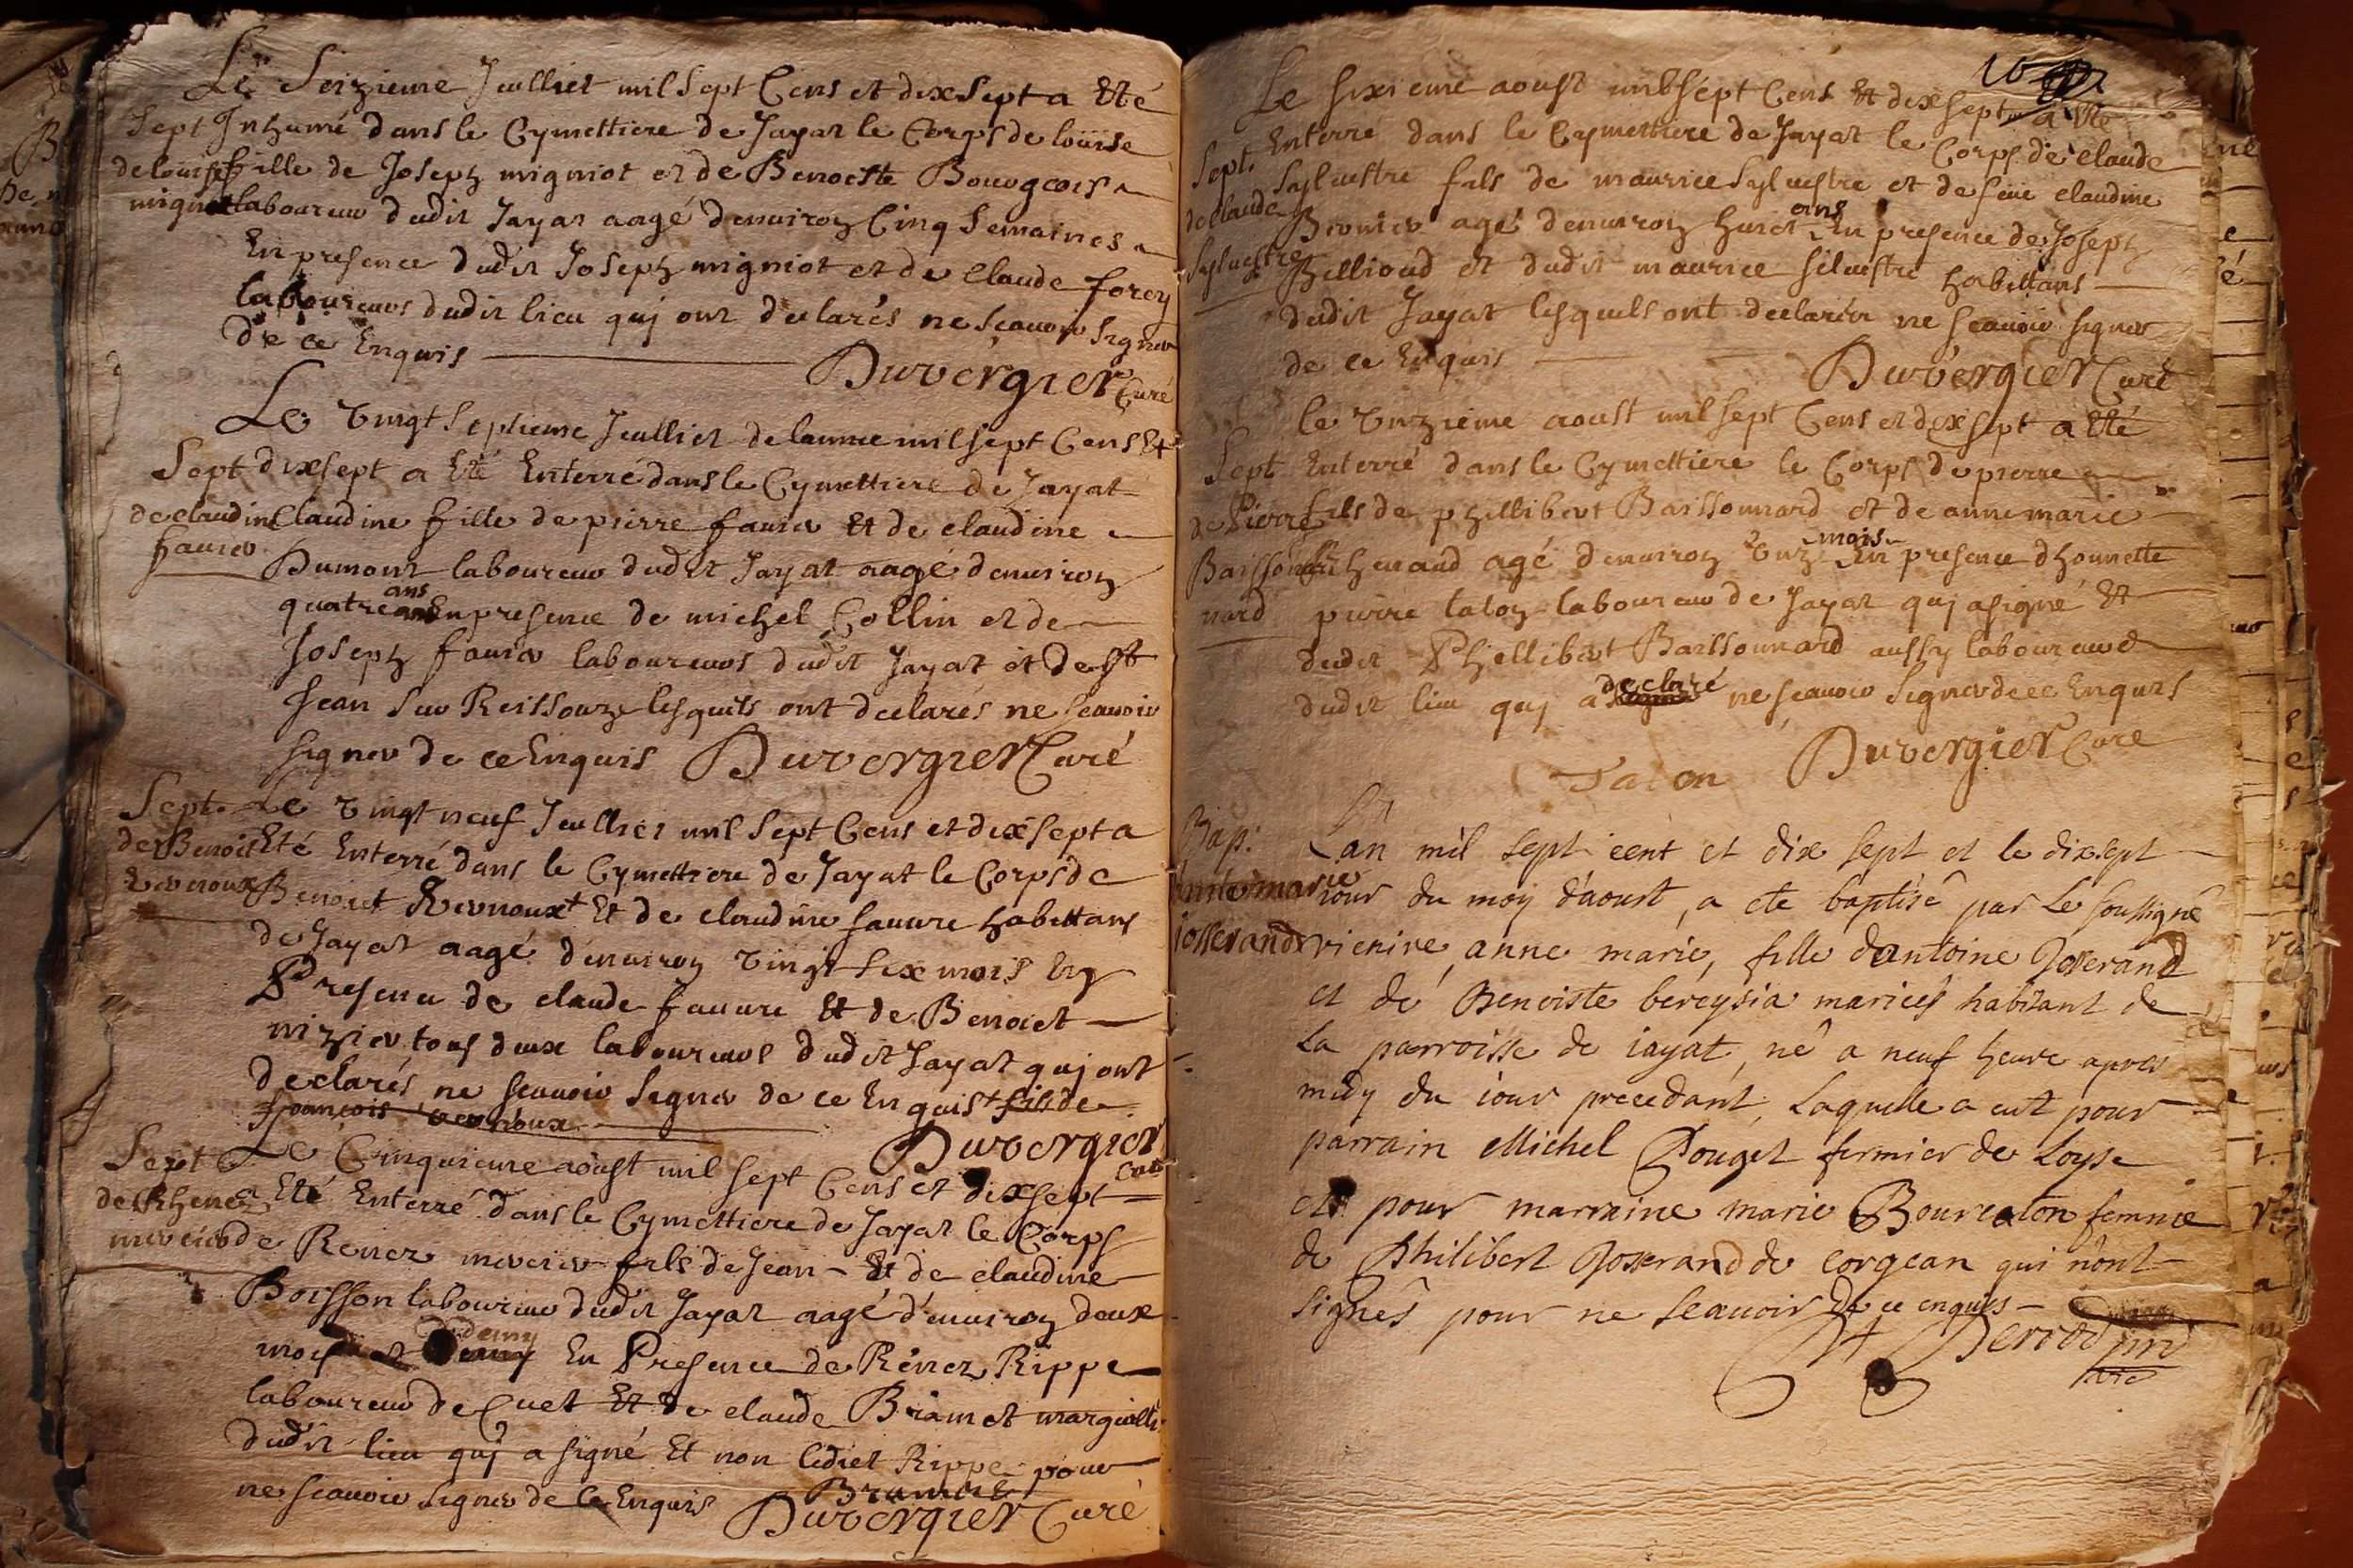 Le Seizieme Jeulliet mil Sept Cens et dixsept a Eté
Sept Inhumé dans le Cymettiere de Jayat le Corps de louise
de louise fille de Joseph migniot et de Benoiste Bourgeois
migniot laboureur dudit Jayat aagé denuiron Cinq Semaines
En presence dudit Joseph migniot et de Claude forey
laboureurs dudit lieu quj ont declarés ne scauoir signer
de ce Enquis
Duvergier Curé
Le vingt Septieme Jeulliet de lannee mil sept Cens Et
Sept dixsept a Eté Enterré dans le Cymettiere de Jayat
de claudine Claudine fille de pierre fauier Et de claudine
fauier Dumont laboureur dudit Jayat aagé denuiron
ans
quatre En presence de michel Collin et de
Joseph fauier laboureurs dudit Jayat et de St
Jean Sur Reissouze lesquels ont declarés ne scauoir
signer de ce Enquis Duvergier Curé
Sept. Le vingt neuf Jeulliet mil Sept Cens et dixsept a
de Benoit Eté Enterré dans le Cymettiere de Jayat le Corps de
Benoict Vernoux + Et de claudine fauure habittans
de Jayat aagé denuiron vingt six mois En
Presence de claude fauure Et de Benoict
nizier tous deux laboureurs dudit Jayat quj ont
declarés ne scauoir signer de ce Enquis + fils de
françois vernoux
Duvergier Curé
Sept Le Cinquieme aoust mil sept Cens et dixsept
a Eté Enterré dans le Cymettiere de Jayat le Corps
de Renez mercier fils de Jean Et de claudine
Boisson laboureur dudit Jayat aagé denuiron deux
demy
mois et En Presence de Renez Rippe
laboureur de Cuet Et de claude Bramet margueillier
dudit lieu quj a signé Et non lediet Rippe pour
ne scauoir signer de Ce Enquis Bramet
Duvergier Curé
Le sixieme aoust mil sept Cens Et dixsept a Eté
Sept. Enterré dans le Cymettiere de Jayat le Corps de claude
de Claude Syluestre fils de maurice Syluestre et de feüe claudine
ans
Syluestre Brouier agé denuiron huict En presence de Joseph
Billioud et dudit maurice siluestre habittans
dudit Jayat lesquels ont declarér ne scauoir signer
de ce Enquis
Duvergier Curé
le unzieme aoust mil sept Cens et dixsept a Eté
Sept Enterré dans le Cymettiere le Corps de pierre
de Pierre fils de phillibert Baissonnard et de anne marie
mois
agé denuiron unze En presence dhonnette
nard pierre talon laboureur de Jayat quj a signé Et
dudit Phillibert Baissonnard aussy laboureur
declaré
dudit lieu quj a ne scauoir signer de ce Enquis
Talon Duvergier Curé
Bap: Lan mil sept cent et dix sept et le dixsept
anne marie iour du moy d'aoust, a ete baptisé par Le soussigné
iosserand vicaire, anne marie, fille d'antoine Josserand
et de Benoiste bereysia mariés habitant de
La parroisse de iayat, né a neuf heure apres
midy du iour precedant, Laquelle a eut pour
parrain Michel Pouget fermier de Loyse
et pour marraine marie Bourcaton femme
de Philibert Josserand de corgean qui n'ont
signés pour ne scauoir de ce enquis